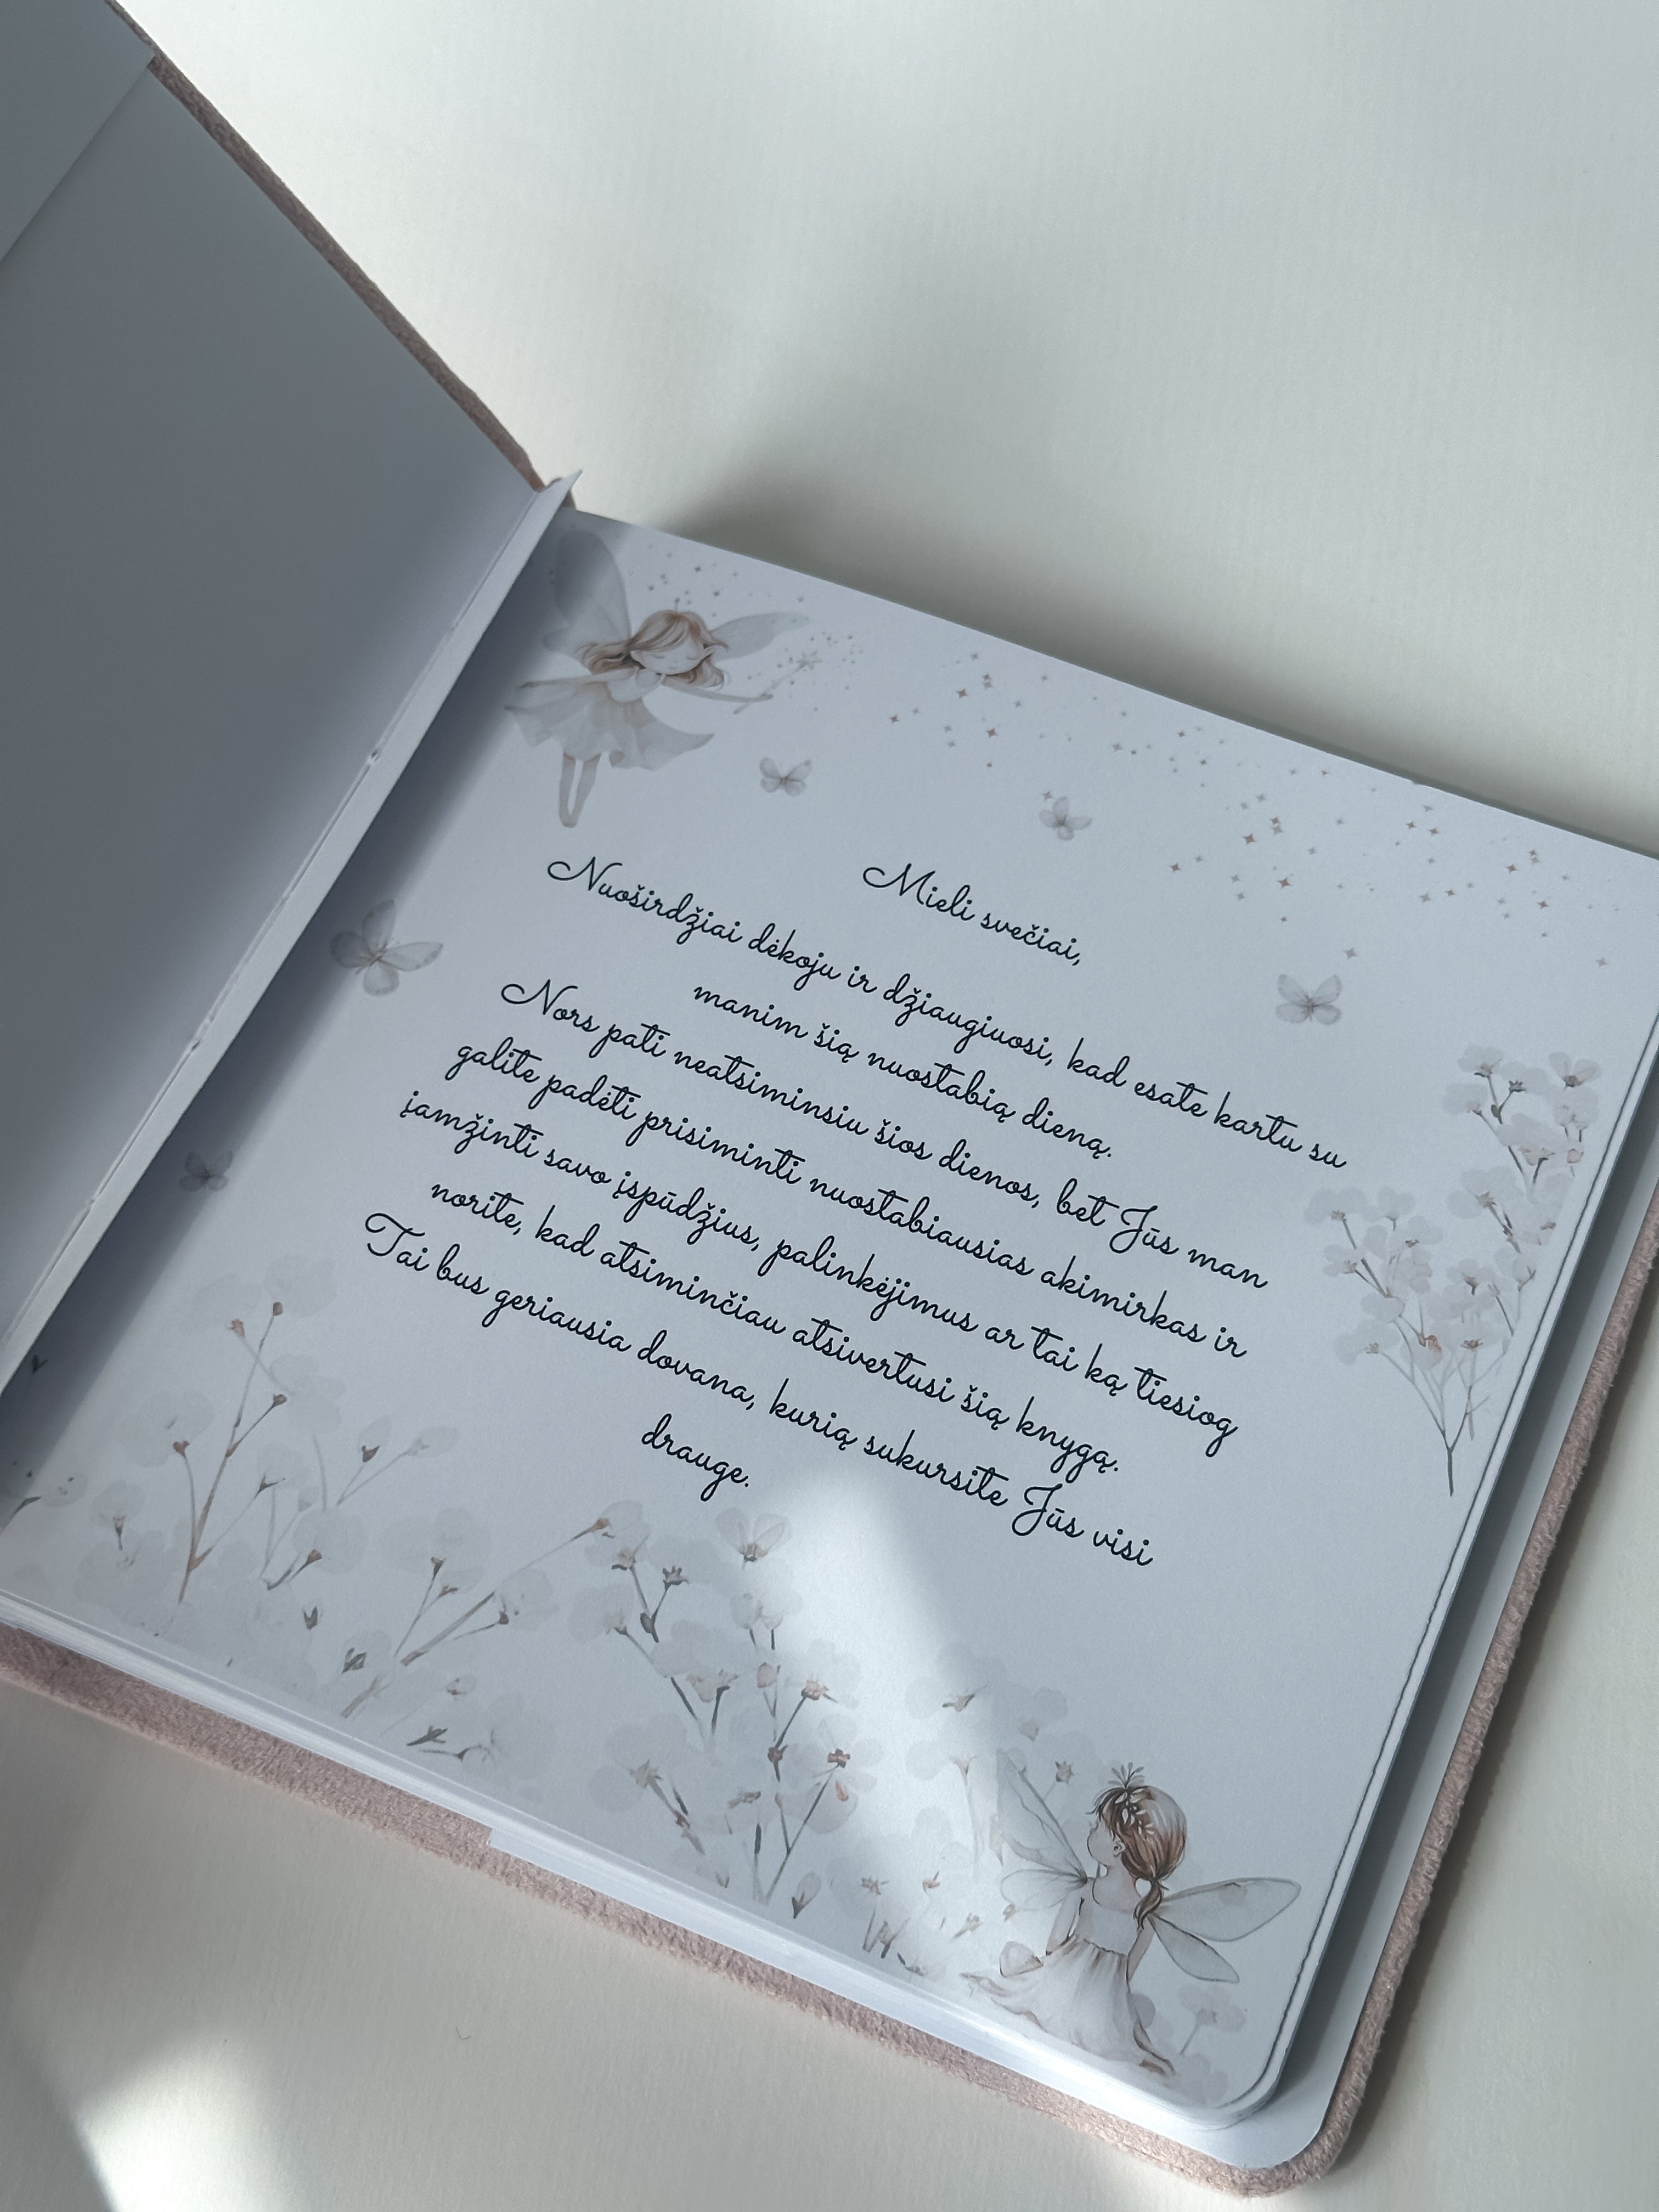 Mieli svečiai,
Nuoširdžiai dėkoju ir džiaugiuosi, kad esate kartu su
manim šią nuostabią dieną.
Nors pati neatsiminsiu šios dienos, bet Jūs man
galite padėti prisiminti nuostabiausias akimirkas ir
įamžinti savo įspūdžius, palinkėjimus ar tai ką tiesiog
norite, kad atsiminčiau atsivertusi šią knygą.
Tai bus geriausia dovana, kurią sukursite Jūs visi
drauge.